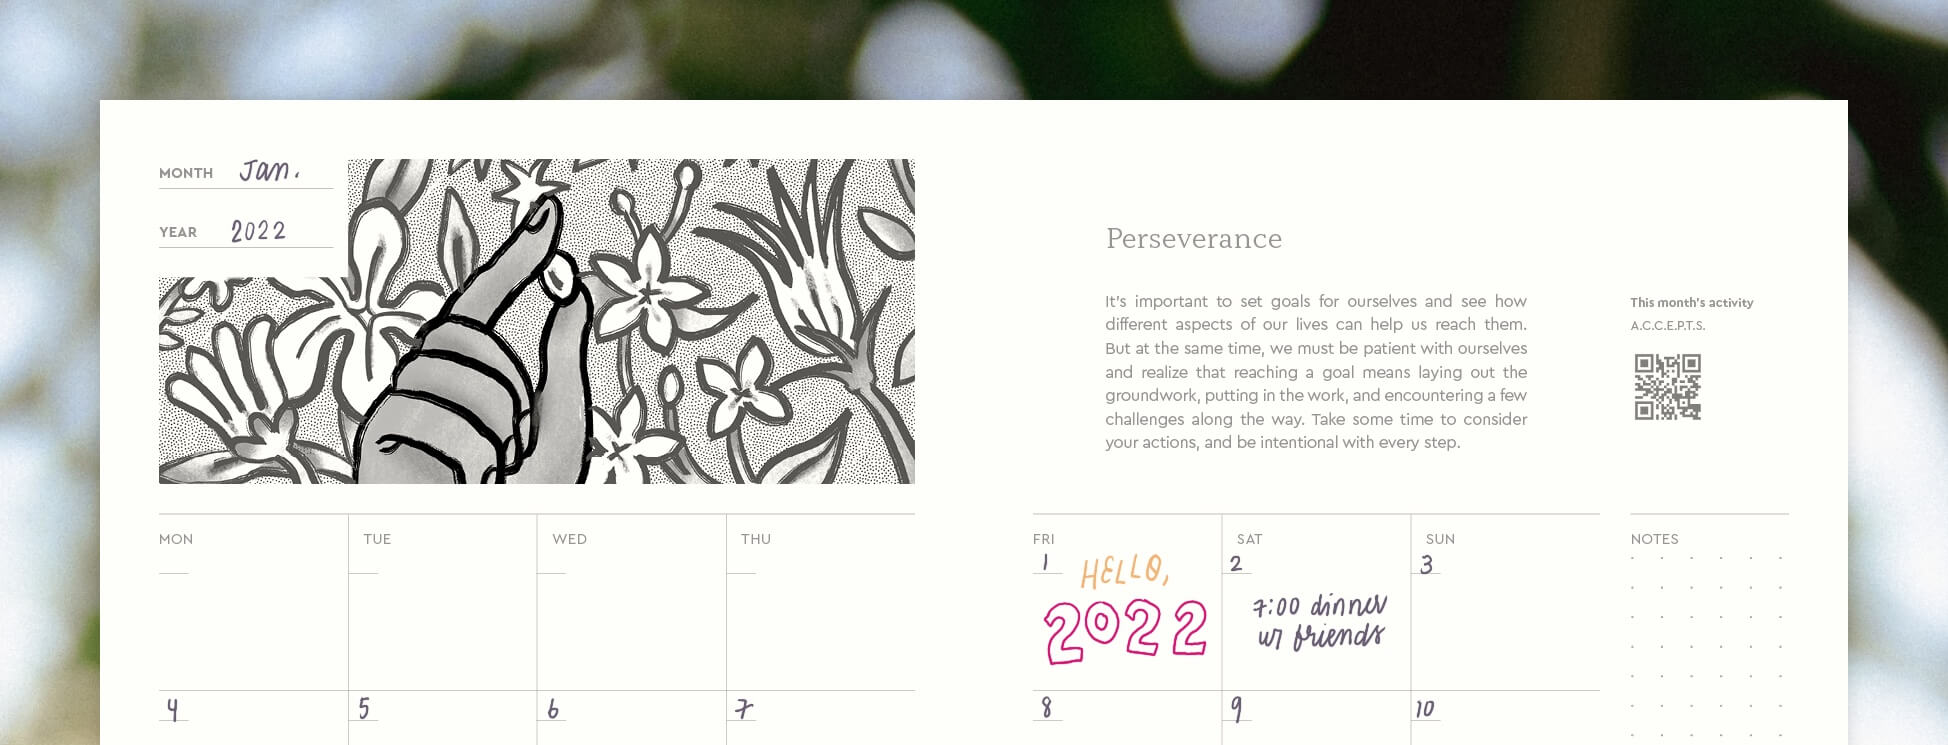 MONTH Jan.
YEAR 2022
Perseverance
It's important to set goals for ourselves and see how
different aspects of our lives can help us reach them.
But at the same time, we must be patient with ourselves
and realize that reaching a goal means laying out the
groundwork, putting in the work, and encountering a few
challenges along the way. Take some time to consider
your actions, and be intentional with every step.
This month's activity
A.C.C.E.P.T.S.
MON TUE WED THU FRI SAT SUN NOTES
1 2 3
HELLO,
2022
7:00 dinner
w/ friends
4 5 6 7 8 9 10